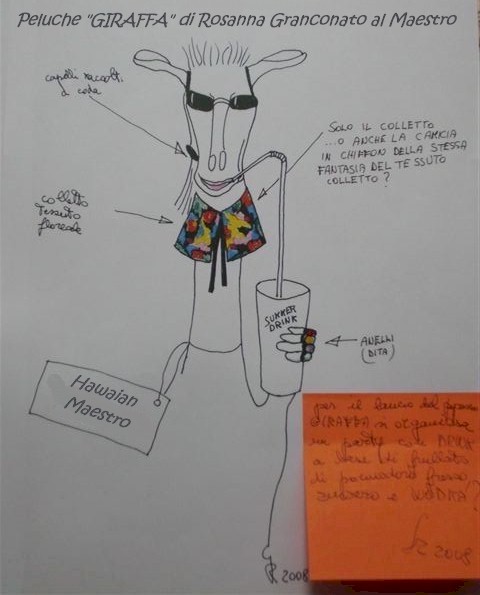 Peluche "GIRAFFA" di Rosanna Granconato al Maestro
capelli raccolti
a coda
SOLO IL COLLETTO
...O ANCHE LA CAMICIA
IN CHIFFON DELLA STESSA
FANTASIA DEL TESSUTO
COLLETTO?
colletto
Tessuto
floreale
SUMMER
DRINK
ANELLI
(DITA)
Hawaian
Maestro
per il lancio del
GIRAFFA si organizza
un party con DRINK
a base di frullato
di pomodoro fresco,
zucchero e WODKA?
2008
2008